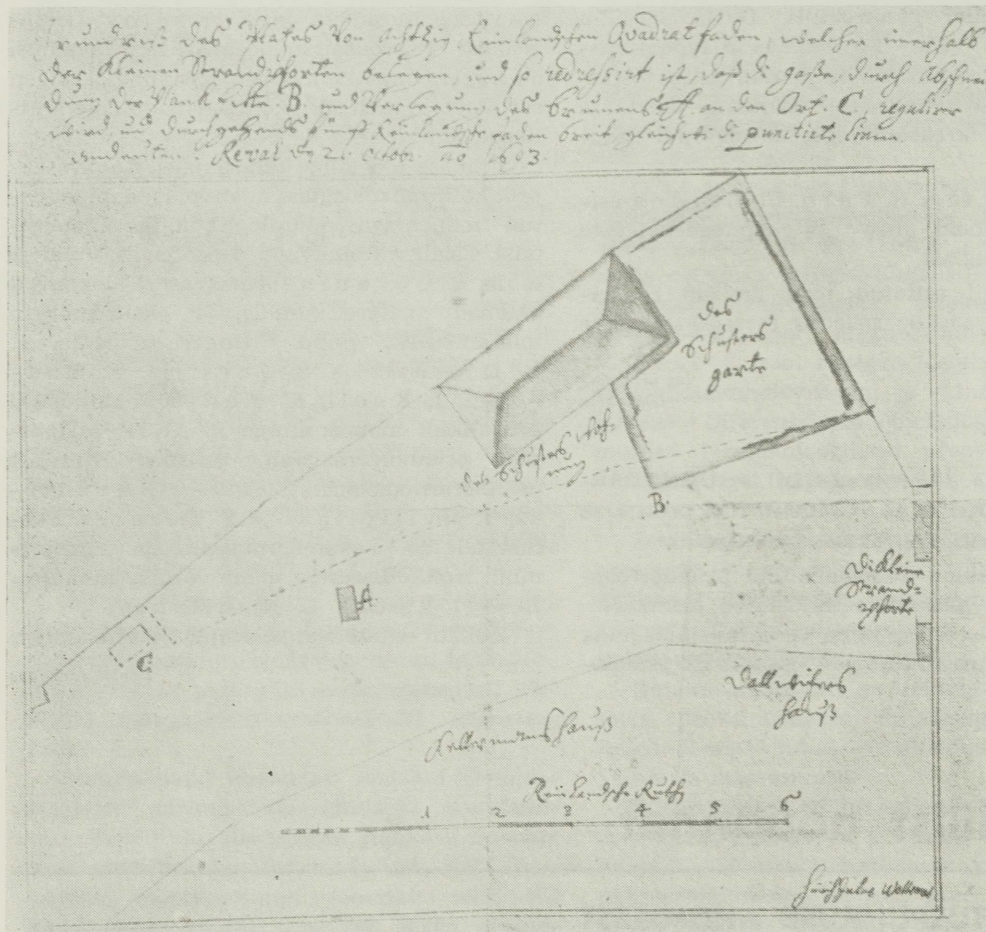 Grundriß des Platzes Von Achtzig Reinlendschen Quadrat faden, welcher innerhalb
der Kleinen Strandpforten belegen, und so redressirt ist, daß di gaße, durch Abschnei
dung der Planck Ecke B. und Verlegung des brunens A. an den Ort. C. regulirer
wird, und durchgehends fünf Reinlendsche faden breit gleich di punctirte linien
andeuten. Reval 
des
Schusters
garte
des Schusters Woh-
nung
B.
Di Kleine
Strand-
pforte
A
C
Dallwitzers
hauß
Kellermans hauß
Reinlandsche Ruth
1 2 3 4 5 6